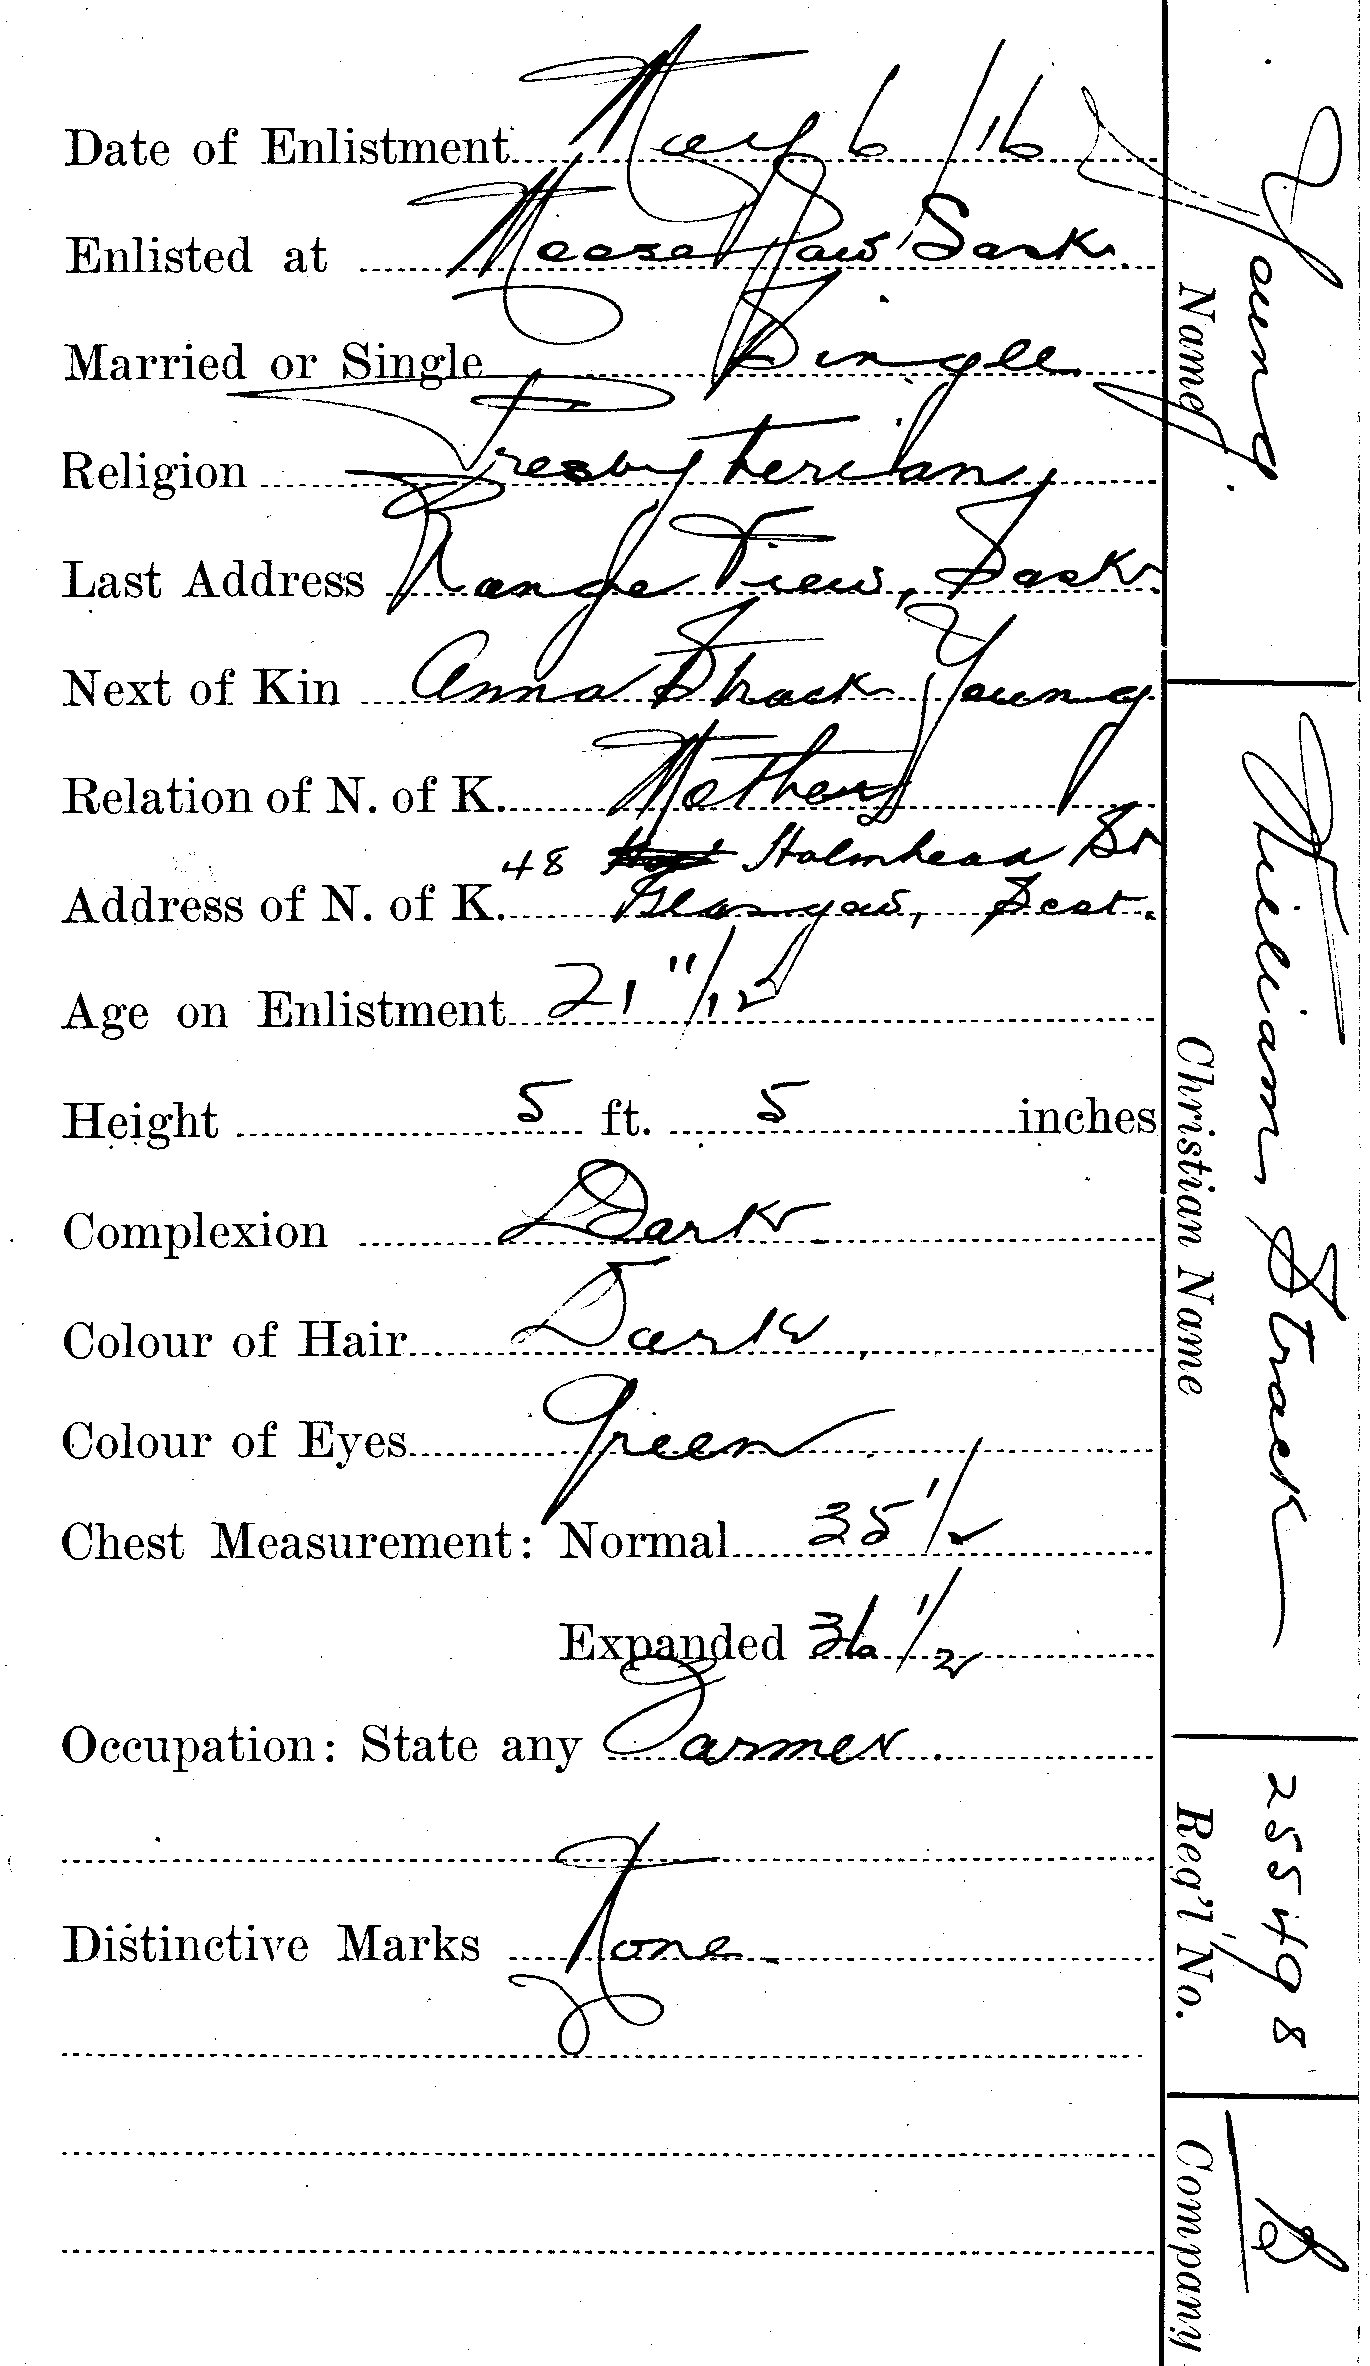 Date of Enlistment May 6/16
Enlisted at Moose Jaw Sask.
Married or Single Single
Religion Presbytherian
Last Address Range View, Sask.
Next of Kin Anna Strack Young
Relation of N. of K. Mother
48 Holmhead St
Address of N. of K. Glasgow, Scot.
Age on Enlistment 21 11/12
Height 5 ft. 5 inches
Complexion Dark
Colour of Hair Dark
Colour of Eyes Green
Chest Measurement: Normal 35 1/2
Expanded 36 1/2
Occupation: State any Farmer
Distinctive Marks None
Young
Name
William Strack
Christian Name
255498
Reg'l No.
B
Company